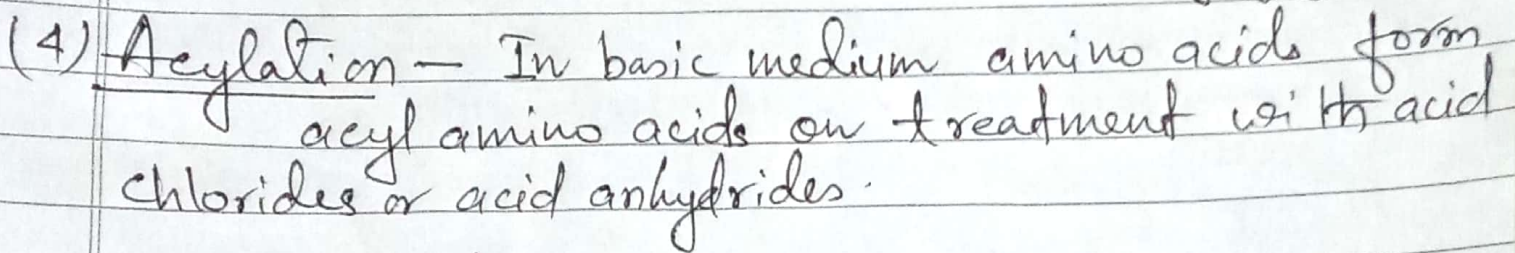 (4) Acylation - In basic medium amino acids form
acyl amino acids on treatment with acid
chlorides or acid anhydrides.